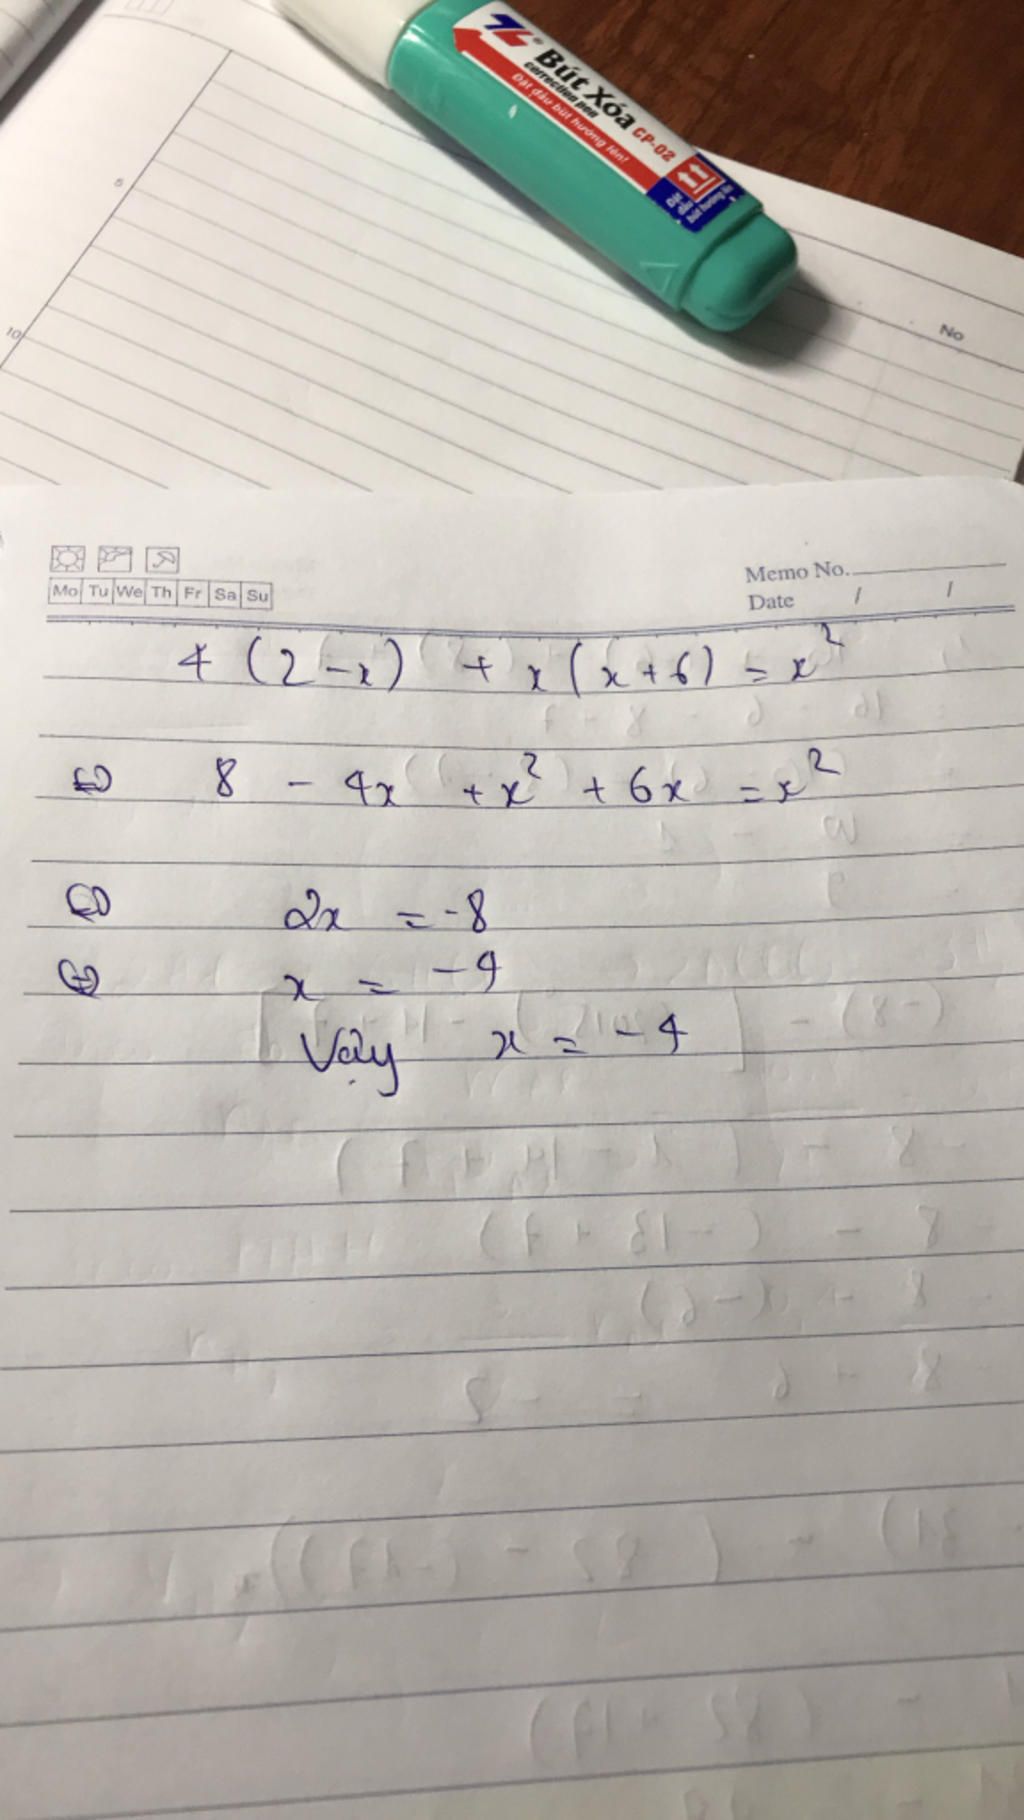 TL®
Bút Xóa CP-02
correction pen
Đặt đầu bút hướng lên!
5
10
No
Mo Tu We Th Fr Sa Su
Memo No.
Date / /
4 (2 - x) + x (x + 6) = x²
⇔ 8 - 4x + x² + 6x = x²
⇔ 2x = -8
⇔ x = -4
Vậy x = -4